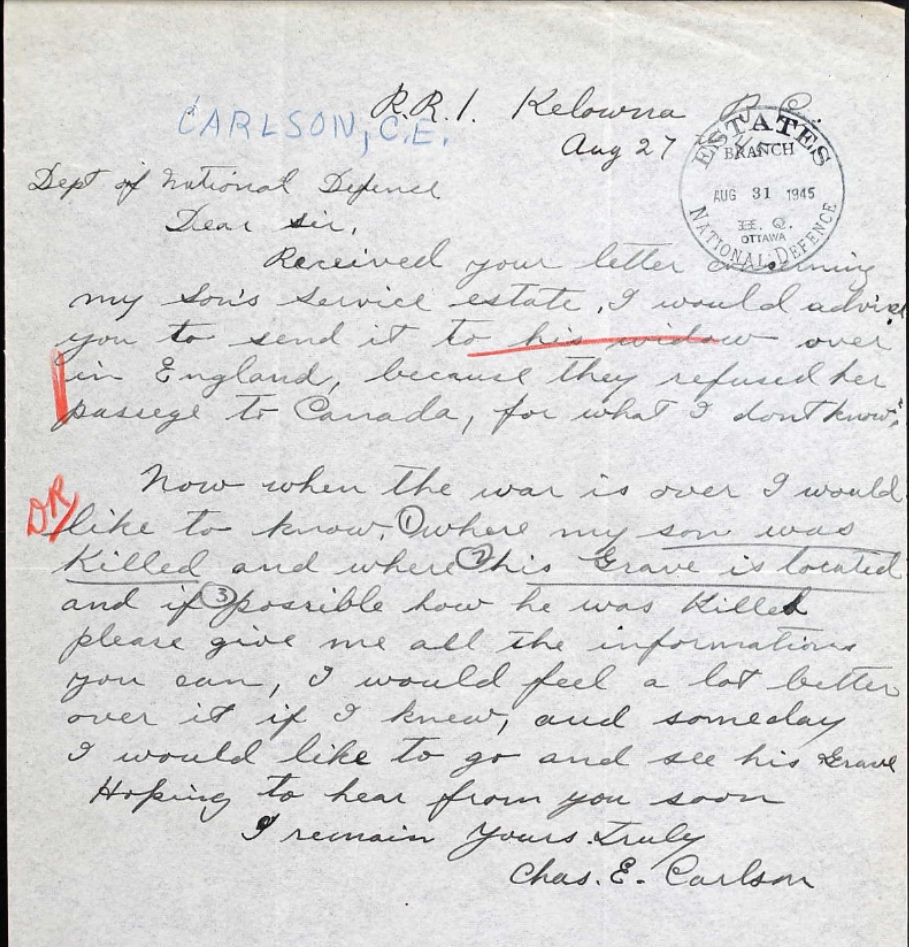 R.R.1. Kelowna B.C.
CARLSON, C.E.
Aug 27
ESTATES
BRANCH
AUG 31 1945
H. Q.
OTTAWA
NATIONAL DEFENCE
Dept of National Defence
Dear Sir,
Received your letter concerning
my son's service estate, I would advise
you to send it to his widow over
in England, because they refused her
passege to Canada, for what I dont know.
Now when the war is over I would
DR
like to know, ① where my son was
Killed and where ② his Grave is located
and if ③ possible how he was Killed
please give me all the informations
you can, I would feel a lot better
over it if I knew, and someday
I would like to go and see his Grave
Hoping to hear from you soon
I remain Yours Truly
Chas. E. Carlson